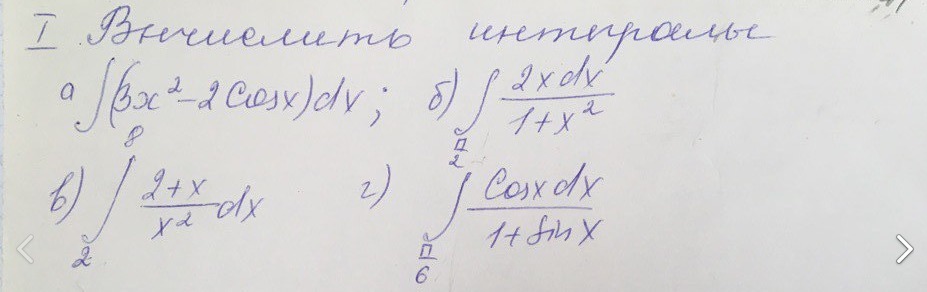 I Вычислить интегралы
а ∫(3x² - 2Cosx)dx; б) ∫ 2xdx / 1+x²
в) ∫₂⁸ 2+x / x² dx г) ∫ Cosxdx / 1+SinX (π/6, π/2)